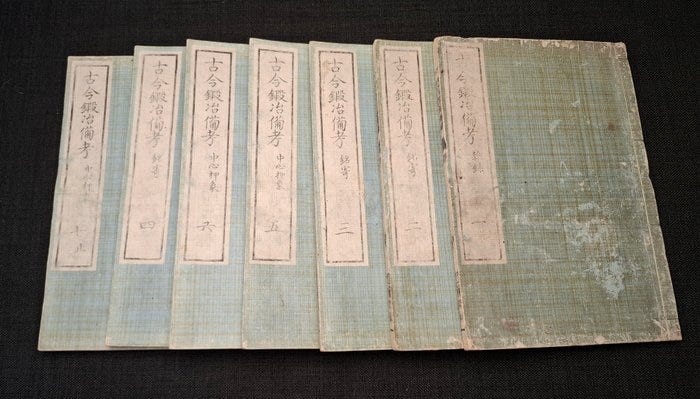 古今鍛冶備考 一
古今鍛冶備考 銘寄 二
古今鍛冶備考 銘寄 三
古今鍛冶備考 中心押象 五
古今鍛冶備考 中心押象 六
古今鍛冶備考 銘寄 四
古今鍛冶備考 七止